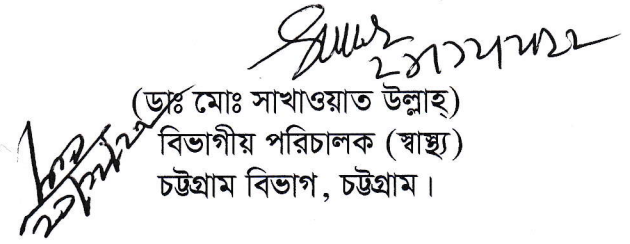 (ডাঃ মোঃ সাখাওয়াত উল্লাহ্)
বিভাগীয় পরিচালক (স্বাস্থ্য)
চট্টগ্রাম বিভাগ, চট্টগ্রাম।